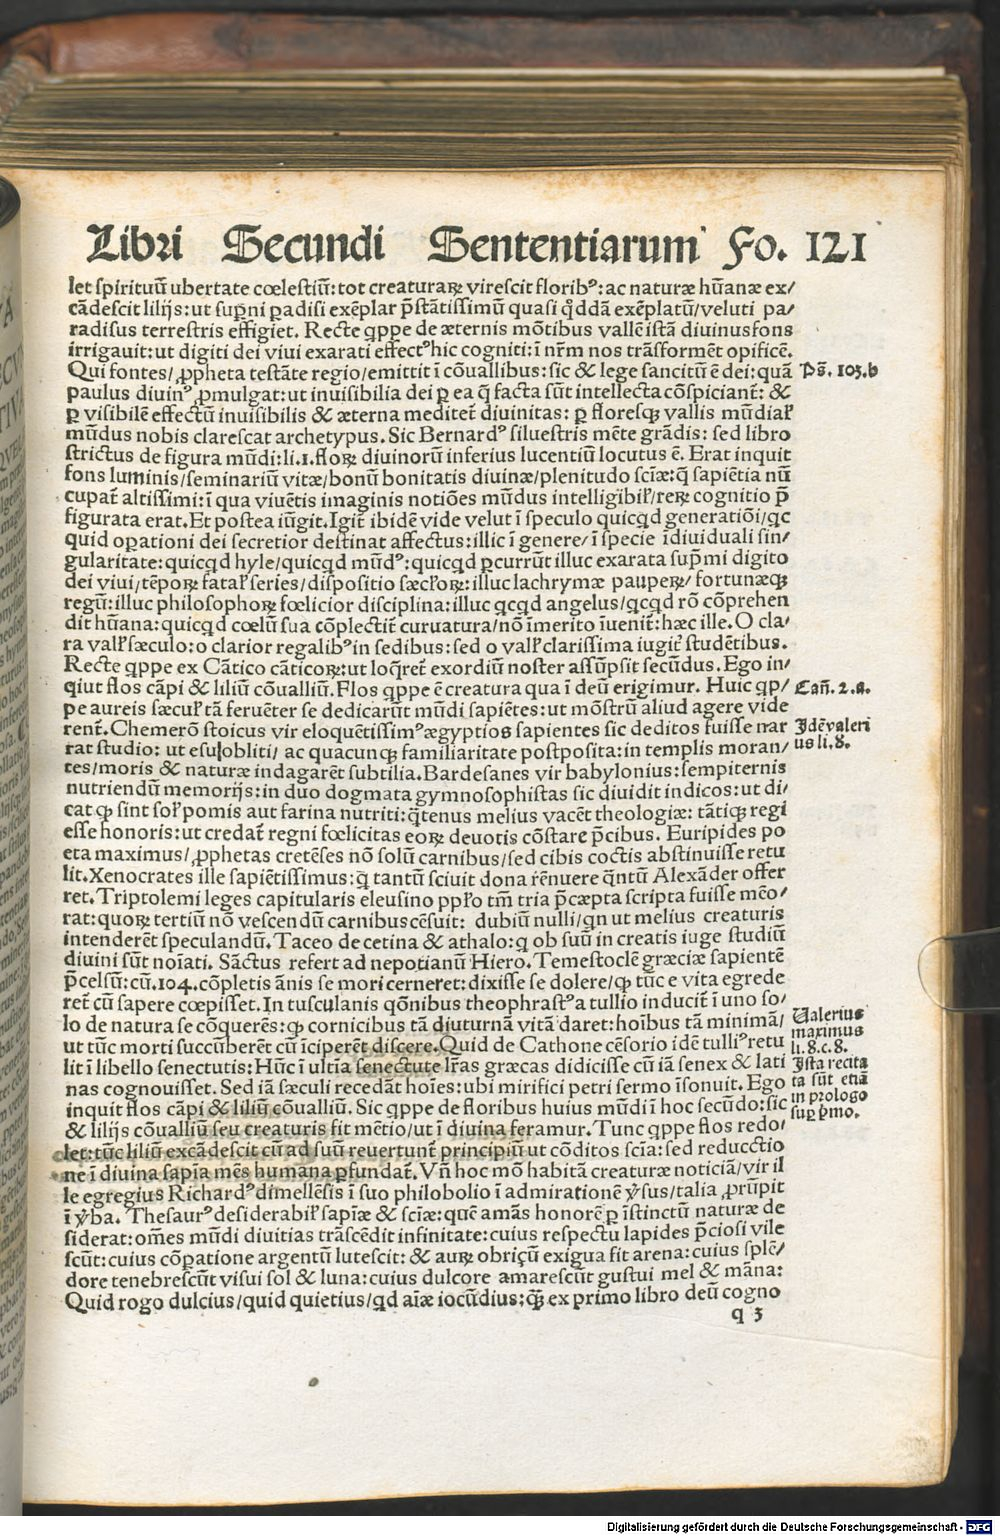 Libri Secundi Sententiarum Fo. 121
let spirituū ubertate cœlestiū: tot creaturaꝝ virescit floribꝰ: ac naturæ hūanæ ex/
cādescit lilijs: ut sup̄ni ꝑadisi exēplar p̄stātissimū quasi qͥddā exēplatū/veluti pa/
radisus terrestris effigiet. Recte qͥppe de æternis mōtibus vallē istā diuinus fons
irrigauit: ut digiti dei viui exarati effectꝰ hic cogniti: ī nr̄m nos trāsformēt opificē.
Qui fontes/ ꝓpheta testāte regio/emittit ī cōuallibus: sic & lege sancitū ē dei: quā
Ps̄. 103.b
paulus diuinꝰ ꝓmulgat: ut inuisibilia dei ꝑ ea q̄ facta sūt intellecta cōspiciant̄: &
ꝑ visibilē effectū inuisibilis & æterna meditet̄ diuinitas: ꝑ floresqꝫ vallis mūdiaꝉ
mūdus nobis clarescat archetypus. Sic Bernardꝰ siluestris mēte grādis: sed libro
strictus de figura mūdi: li.1. floꝝ diuinorū inferius lucentiū locutus ē. Erat inquit
fons luminis/seminariū vitæ/bonū bonitatis diuinæ/plenitudo sciæ: q̄ sapiētia nū
cupat̄ altissimi: ī qua viuētis imaginis notiōes mūdus intelligibiꝉ/reꝝ cognitio p̄
figurata erat. Et postea iūgit. Igit̄ ibidē vide velut ī speculo quicqͥd generatiōi/qͥc
quid oꝑationi dei secretior destinat affectus: illic ī genere/ ī specie īdiuiduali sin/
gularitate: quicqͥd hyle/quicqͥd mūdꝰ: quicqͥd ꝑcurrūt illuc exarata sup̄mi digito
dei viui/tēpoꝝ fataꝉ series/dispositio sæcꝉoꝝ: illuc lachrymæ pauꝑeꝝ/ fortunæqꝫ
regū: illuc philosophoꝝ fœlicior disciplina: illuc qͥcqͥd angelus/qͥcqͥd rō cōprehen
dit hūana: quicqͥd cœlū sua cōplectit̄ curuatura/nō īmerito īuenit̄: hæc ille. O cla/
ra valꝉ sæculo: o clarior regalibꝰ in sedibus: sed o valꝉ clarissima iugit̄ studētibus.
Recte qͥppe ex Cātico cāticoꝝ: ut loq̄ret̄ exordiū noster assūpsit secūdus. Ego in/
qiut flos cāpi & liliū cōualliū. Flos qͥppe ē creatura qua ī deū erigimur. Huic qͥp/
Can̄. 2.a.
pe aureis sæcuꝉ tā feruēter se dedicarūt mūdi sapiētes: ut mōstrū aliud agere vide
rent̄. Chemerō stoicus vir eloquētissimꝰ ægyptios sapientes sic deditos fuisse nar
Idē valeri
us li.8.
rat studio: ut esui obliti/ ac quacunqꝫ familiaritate postposita: in templis moran/
tes/moris & naturæ indagarēt subtilia. Bardesanes vir babylonius: sempiternis
nutriendū memorijs: in duo dogmata gymnosophistas sic diuidit indicos: ut di/
cat ꝙ sint soꝉ pomis aut farina nutriti: q̄tenus melius vacēt theologiæ: tātiqꝫ regi
esse honoris: ut credat̄ regni fœlicitas eoꝝ deuotis cōstare p̄cibus. Euripides po
eta maximus/ ꝓphetas cretēses nō solū carnibus/sed cibis coctis abstinuisse retu
lit. Xenocrates ille sapiētissimus: q̄ tantū sciuit dona rēnuere q̄ntū Alexāder offer
ret. Triptolemi leges capitularis eleusino ppꝉo tm̄ tria p̄cæpta scripta fuisse mēo/
rat: quoꝝ tertiū nō vescendū carnibus cēsuit: dubiū nulli/qͥn ut melius creaturis
intenderēt speculandū. Taceo de cetina & athalo: q ob suū in creatis iuge studiū
diuini sūt noīati. Sāctus refert ad nepotianū Hiero. Temestoclē græciæ sapientē
p̄celsū: cū .104. cōpletis ānis se mori cerneret: dixisse se dolere/ꝙ tūc e vita egrede
ret̄ cū sapere cœpisset. In tusculanis qōnibus theophrastꝰ a tullio inducit̄ ī uno so/
lo de natura se cōquerēs: ꝙ cornicibus tā diuturnā vitā daret: hoībus tā minimā/
Valerius
maximus
li.8.c.8.
ut tūc morti succūberēt cū īciperēt discere. Quid de Cathone cēsorio idē tulliꝰ retu
lit ī libello senectutis: Hūc ī ultīa senectute lr̄as græcas didicisse cū iā senex & lati
Ista recita
ta sūt etiā
in prologo
suꝑ p̄mo.
nas cognouisset. Sed iā sæculi recedāt hoīes: ubi mirifici petri sermo īsonuit. Ego
inquit flos cāpi & liliū cōualliū. Sic qͥppe de floribus huius mūdi ī hoc secūdo: sic
& lilijs cōualliū seu creaturis fit mētio/ut ī diuina feramur. Tunc qͥppe flos redo/
let: tūc liliū excādescit cū ad suū revertunt̄ principiū ut cōditos scīa: sed reducctio
ne ī diuina sapia mēs humana ꝑfundat̄. Vn̄ hoc mō habitā creaturæ noticiā/vir il
le egregius Richardꝰ dimellēsis ī suo philobolio ī admirationē v̓sus/talia ꝓrūpit
ī v̓ba. Thesaurꝰ desiderabiꝉ sapīæ & scīæ: quē amās honorē ꝑ īstinctū naturæ de
siderat: om̄es mūdi diuitias trāscēdit infinitate: cuius respectu lapides p̄ciosi vile
scūt: cuius cōꝑatione argentū lutescit: & auꝝ obriçū exigua fit arena: cuius splē/
dore tenebrescūt visui sol & luna: cuius dulcore amarescūt gustui mel & māna:
Quid rogo dulcius/quid quietius/qͥd aīæ iocūdius: q̄ꝫ ex primo libro deū cogno
q 3
Digitalisierung gefördert durch die Deutsche Forschungsgemeinschaft - DFG